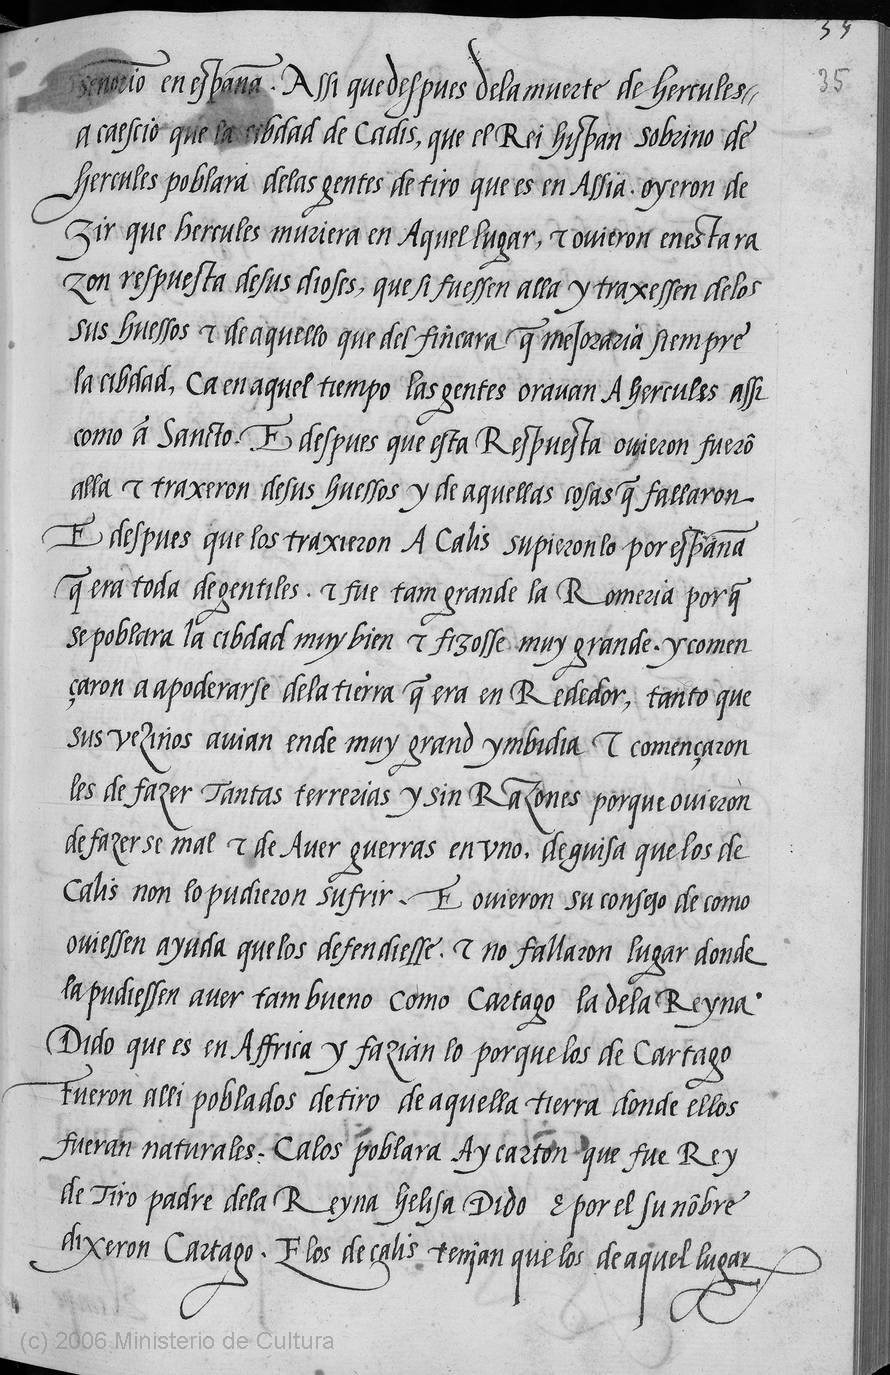 35
35
señorio en espana. Assi que despues dela muerte de hercules
a caescio que la cibdad de Cadis, que el Rei hispan sobrino de
hercules poblara delas gentes de tiro que es en Assia. oyeron de
zir que hercules muriera en Aquel lugar, τ ovieron en esta ra
zon respuesta de sus dioses, que si fuessen alla y traxessen delos
sus huessos τ de aquello que del fincara q̃ mejoraria siempre
la cibdad, Ca en aquel tiempo las gentes oravan A hercules assi
como a Sancto. E despues que esta Respuesta ovieron fuerõ
alla τ traxeron de sus huessos y de aquellas cosas q̃ fallaron
E despues que los traxieron A Calis supieronlo por espana
q̃ era toda de gentiles. τ fue tam grande la Romeria porq̃
se poblara la cibdad muy bien τ fizosse muy grande. y comen
çaron a apoderarse dela tierra q̃ era en Rededor, tanto que
sus vezinos avian ende muy grand ymbidia τ començaron
les de fazer Tantas terrerias y sin Razones porque ovieron
de fazerse mal τ de Aver guerras en vno. de guisa que los de
Calis non lo pudieron sufrir. E ovieron su consejo de como
oviessen ayuda que los defendiesse. τ no fallaron lugar donde
la pudiessen aver tam bueno como Cartago la dela Reyna
Dido que es en Affrica y fazian lo porque los de Cartago
fueron alli poblados de tiro de aquella tierra donde ellos
fueran naturales. Calos poblara Ay carton que fue Rey
de Tiro padre dela Reyna helisa Dido τ por el su nõbre
dixeron Cartago. E los de calis tenjan que los de aquel lugar
(c) 2006 Ministerio de Cultura